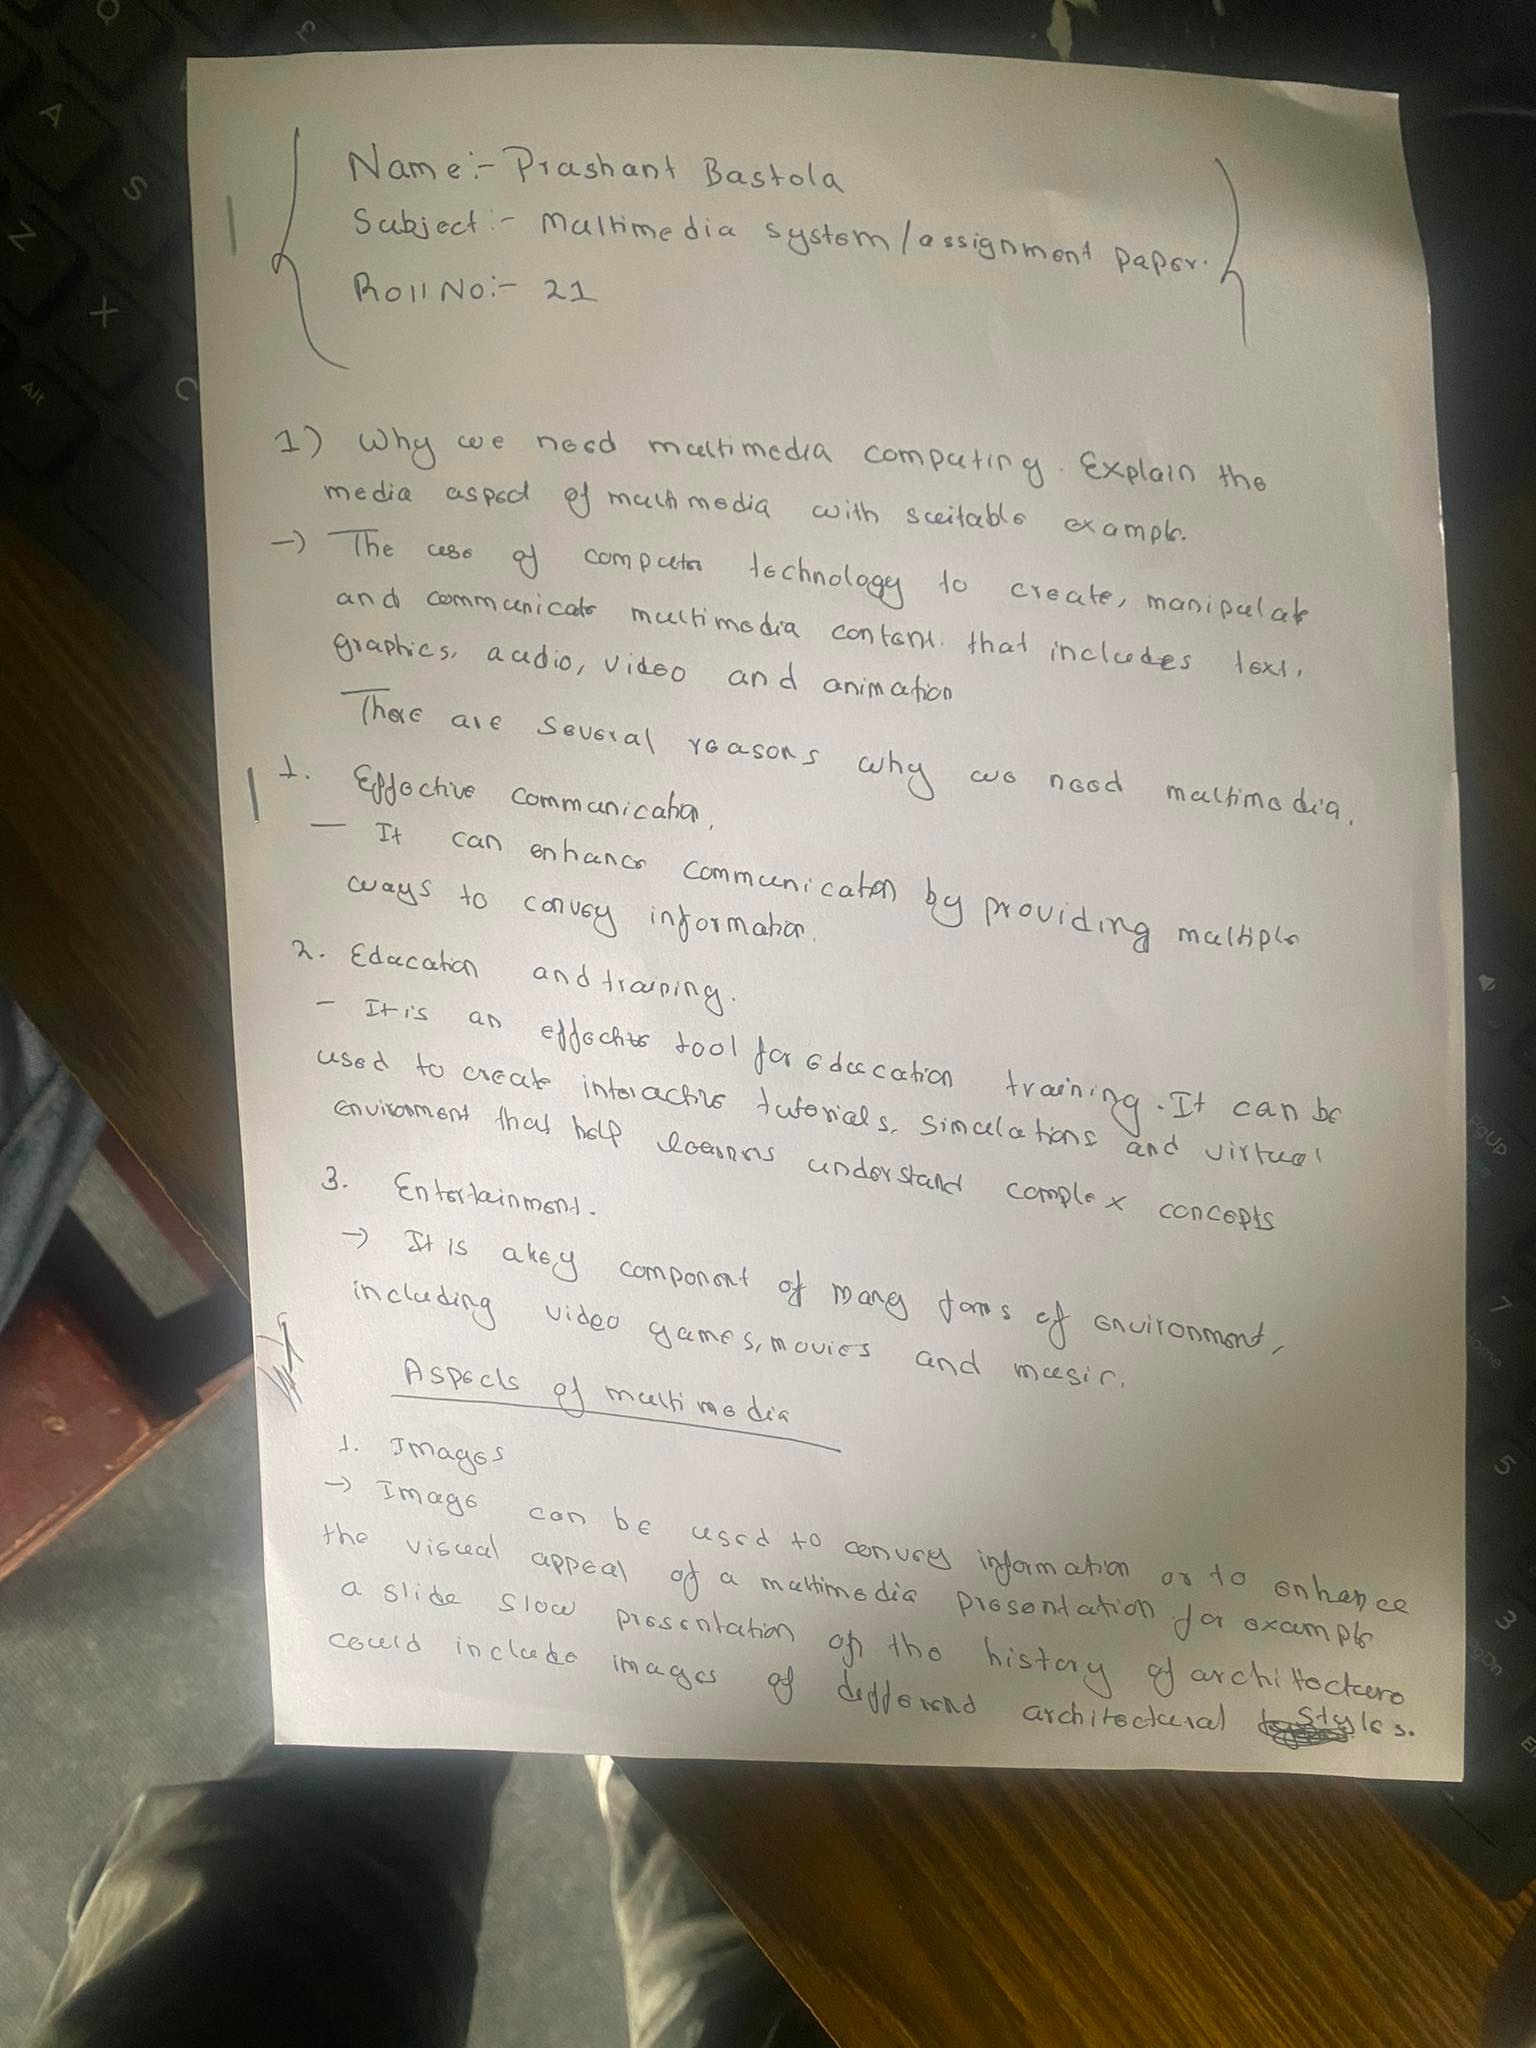 Name:- Prashant Bastola
Subject:- Multimedia system/assignment paper.
Roll No:- 21
1) Why we need multimedia computing. Explain the
media aspect of multimedia with suitable example.
→ The use of computer technology to create, manipulate
and communicate multimedia content. that includes text,
graphics, audio, video and animation
There are several reasons why we need multimedia.
1. Effective communication,
- It can enhance communication by providing multiple
ways to convey information.
2. Education and training.
- It is an effective tool for education training. It can be
used to create interactive tutorials, simulations and virtual
environment that help learners understand complex concepts
3. Entertainment.
→ It is a key component of many forms of environment,
including video games, movies and music.
Aspects of multimedia
1. Images
→ Image can be used to convey information or to enhance
the visual appeal of a multimedia presentation for example
a slide slow presentation on the history of architecture
could include images of different architectural styles.
A
S
Z
X
C
Alt
PgUp
7
Home
5
3
PgDn